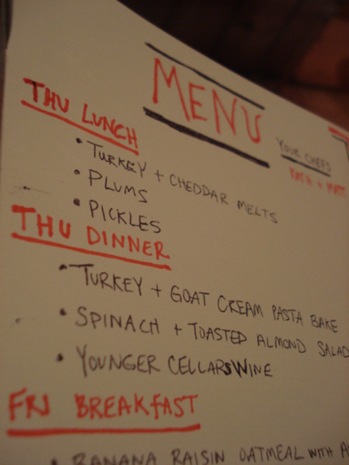 MENU
YOUR CHEFS
KATH + MATT
THU LUNCH
• TURKEY + CHEDDAR MELTS
• PLUMS
• PICKLES
THU DINNER
• TURKEY + GOAT CREAM PASTA BAKE
• SPINACH + TOASTED ALMOND SALAD
• YOUNGER CELLARS WINE
FRI BREAKFAST
• BANANA RAISIN OATMEAL WITH